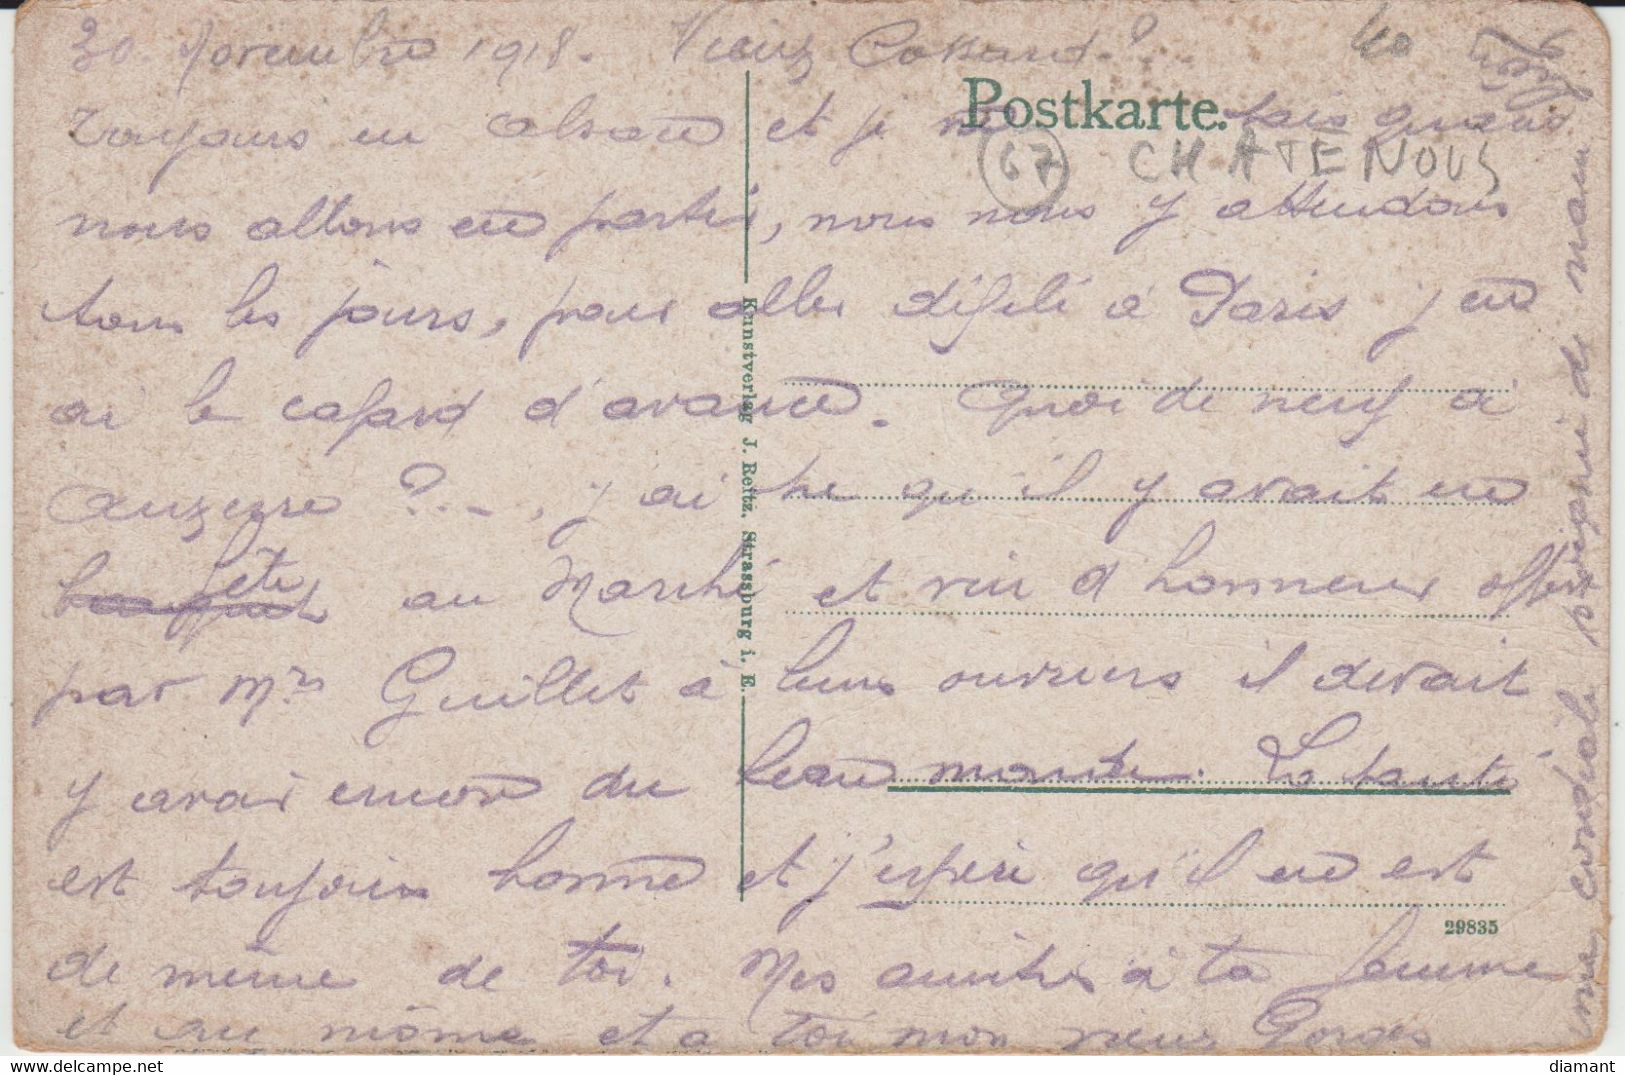 30. Novembre 1918. Vieux Cossard ?
40
Postkarte.
Toujours en alsace et je ne sais quand
67 CHATENOUS
nous allons en partir, nous nous y attendons
tous les jours, pour aller défilé à Paris j'en
ai le cafard d'avance. Quoi de neuf à
auxerre ?..., j'ai lu qu'il y avait eu
banquet fete au Marché et vin d'honneur offert
par Mrs Guillet à leurs ouvriers il devait
y avoir encore du beau monde. La santé
est toujours bonne et j'espère qu'il en est
de même de toi. Mes amitiés à ta femme
et au môme et a toi mon vieux Gorges
une cordiale poignée de main
Kunstverlag J. Reitz, Strassburg i. E.
29835
delcampe.net
diamant